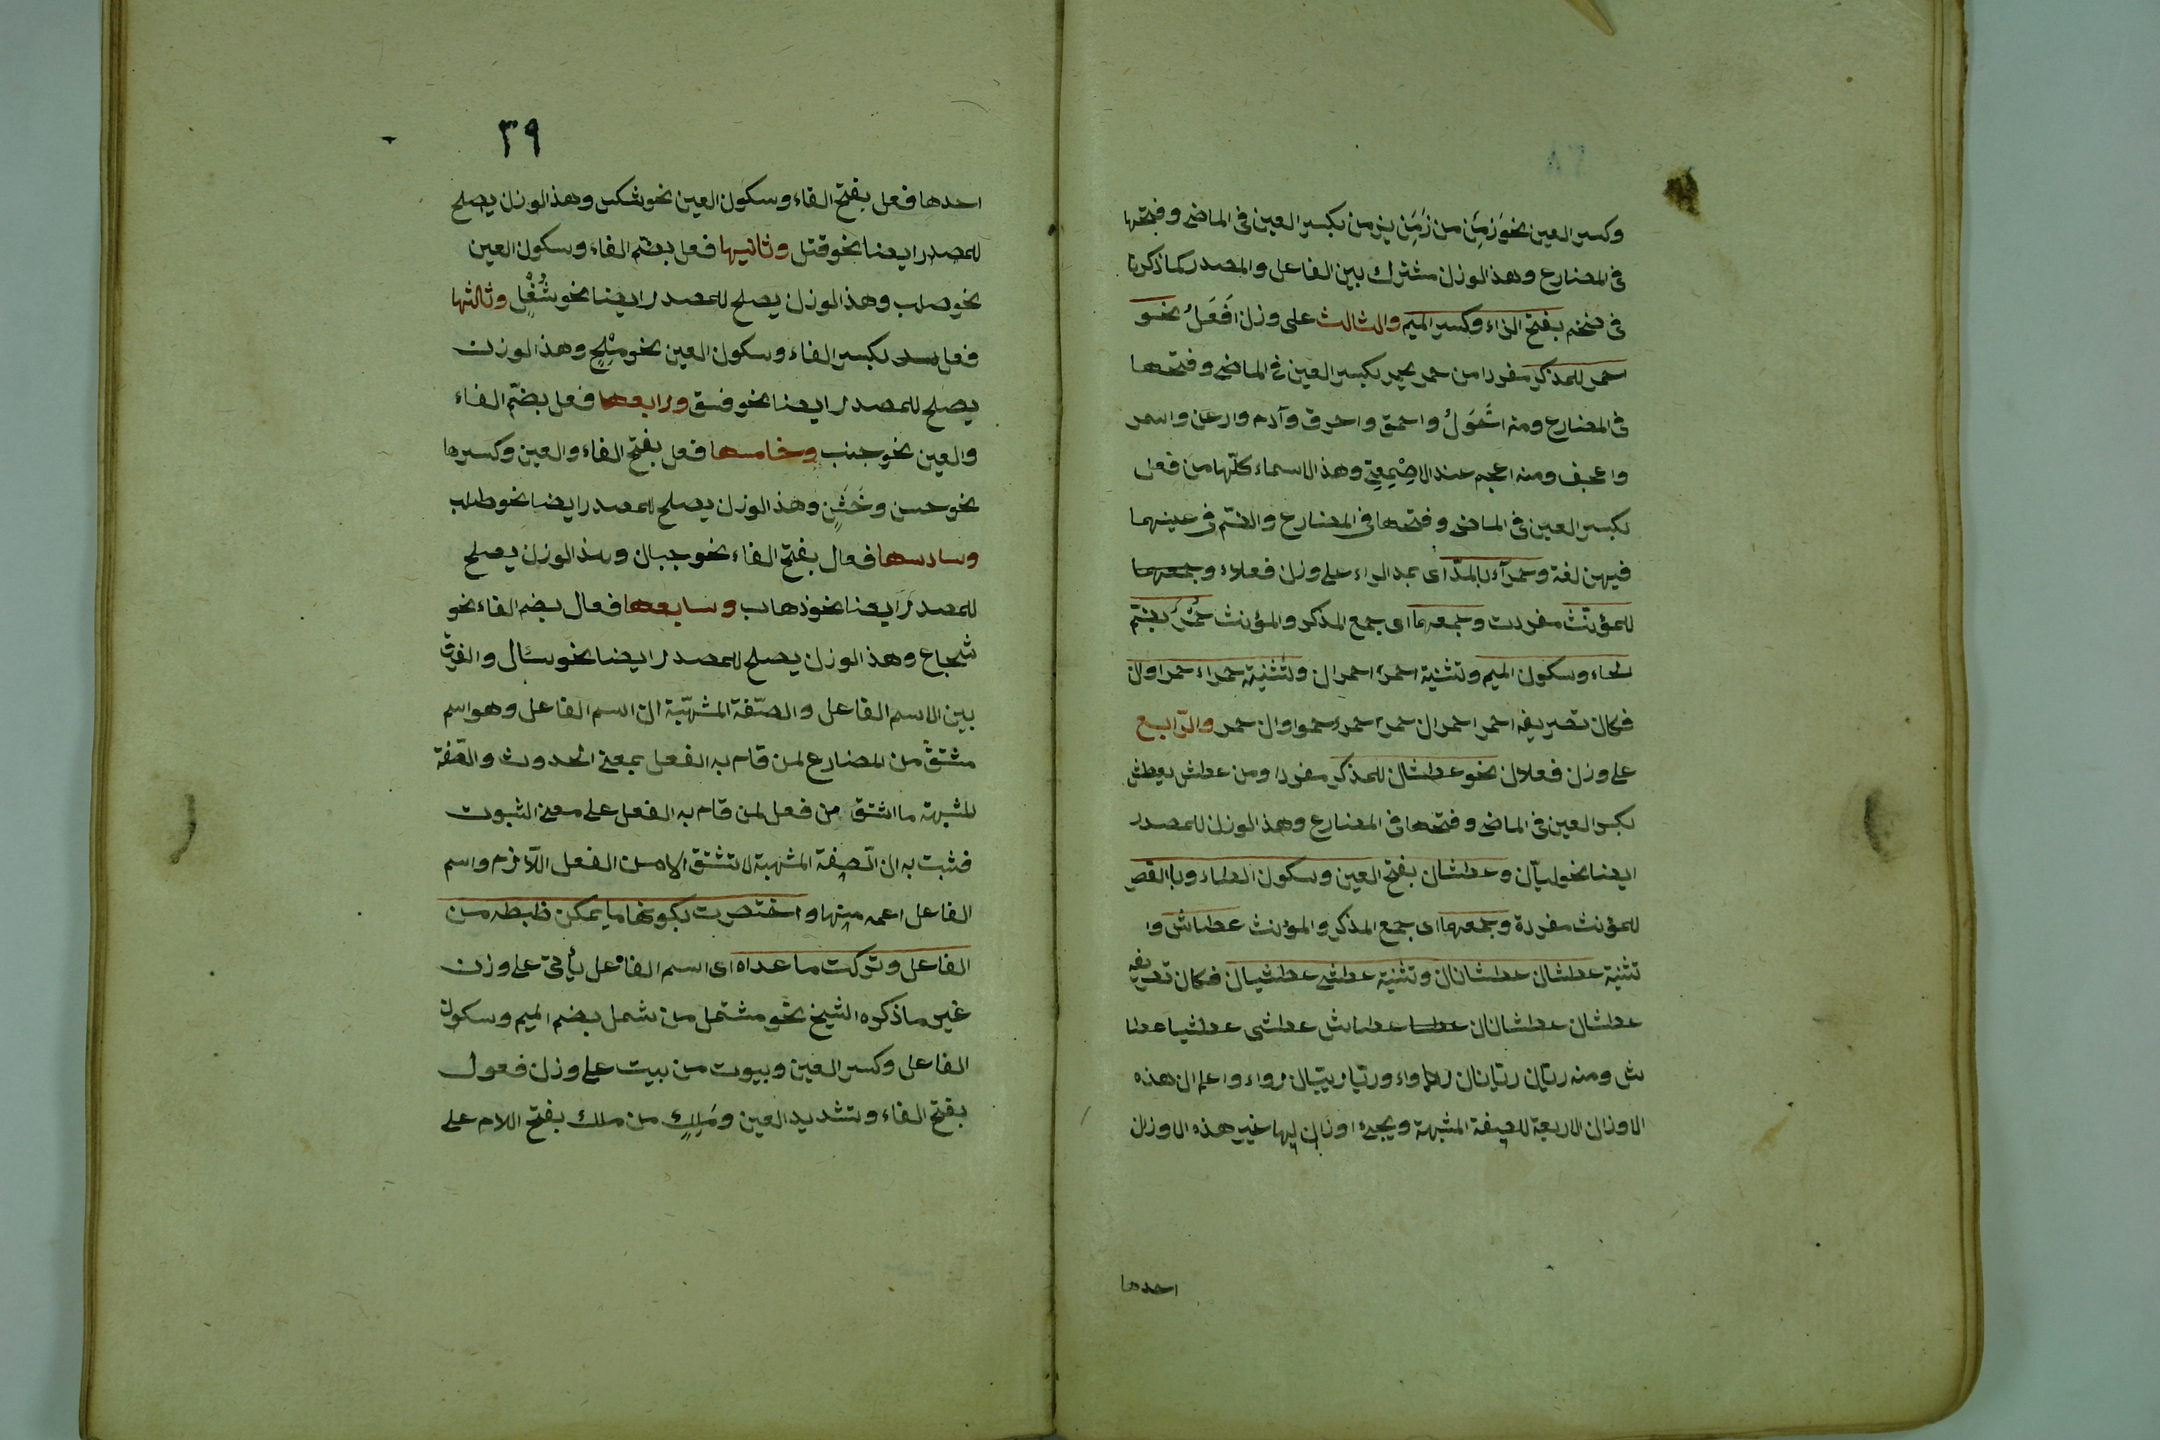 وكسر العين نحو زَمِنٌ من زَمِنَ يزمن بكسر العين فى الماضى وفتحها
فى المضارع وهذ الوزن مشترك بين الفاعل والمصدر كما ذكرنا
فى ضخم بفتح الزاء وكسر الميم والثالث على وزن اَفْعَلُ نحو
احمر للمذكر مفردا من حمر يحمر بكسر العين فى الماضى وفتحها
فى المضارع ومنه احْوَلُ واحمق واخرق وآدم وارعن واسمر
واعجف ومنه اعجم عند الاصْمِعِىّ وهذ الاسماء كلّها من فعل
بكسر العين فى الماضى وفتحها فى المضارع والضّم فى عينهما
فيهن لغة وحمرآء بالمدّ اى بمد الراء على وزن فعلاء وجمعهما
للمؤنّث مفردت وجمعهما اى جمع المذكر والمؤنث حُمْرٌ بضّم
الحاء وسكون الميم وتثنية احمر احمران وتثنية حمراء حمراوان
فكان تصريفه احمر احمران حمر حمراء حمراوان حمر والرّابع
على وزن فعلان نحو عطشان للمذكر مفردا ومن عطش يعطش
بكسر العين فى الماضى وفتحها فى المضارع وهذ الوزن للمصدر
ايضا نحو ليّان وعطشان بفتح العين وسكون الطاء وبا القصر
للمؤنث مفردة وجمعهما اى جمع المذكر والمؤنث عطاش وا
تثنية عطشان عطشانان وتثنية عطشى عطشيان فكان تصريفه
عطشان عطشانان عطاش عطشى عطشيا عطا
ش ومنه ريّان ريّانان رواء وريّا ريّيان رواء واعلم ان هذه
الاوزان الاربعة للصفة المشبهة ويجىء اوزان لها غير هذه الاوزان
احدها
٣٩
احدها فعل بفتح الفاء وسكون العين نحو شكس وهذ الوزن يصلح
للمصدر ايضا نحو قتل وثانيها فعل بضم الفاء وسكون العين
نحو صلب وهذ الوزن يصلح للمصدر ايضا نحو شُغْلٍ وثالثها
فعل بكسر الفاء وسكون العين نحو مِلْحٍ وهذ الوزن
يصلح للمصدر ايضا نحو فسق ورابعها فعل بضّم الفاء
والعين نحو جنب وخامسها فعل بفتح الفاء والعين وكسرها
نحو حسن وخَشِنٍ وهذ الوزن يصلح للمصدر ايضا نحو طلب
وسادسها فعال بفتح الفاء نحو جبان وهذ الوزن يصلح
للمصدر ايضا نحو ذهاب وسابعها فعال بضم الفاء نحو
شجاع وهذ الوزن يصلح للمصدر ايضا نحو سئال والفرق
بين الاسم الفاعل والصّفة المشبّهة ان اسم الفاعل وهو اسم
مشتقّ من المضارع لمن قام به الفعل بمعنى الحدوث والصّفة
المشبهة ما اشتق من فعل لمن قام به الفعل على معنى الثبوت
فثبت به ان الصفة المشبهة لا تشتق الا من الفعل اللّازم واسم
الفاعل اعمه منها واختصرت بكونها ما يمكن ظبطه من
الفاعل وتركت ما عداه اى اسم الفاعل يأتى على وزن
غير ما ذكره الشيخ نحو مشتمل من شمل بضم الميم وسكون
الفاعل وكسر العين وبيوت من بيت على وزن فعول
بفتح الفاء وتشديد العين ومَلِكٍ من ملك بفتح اللام على